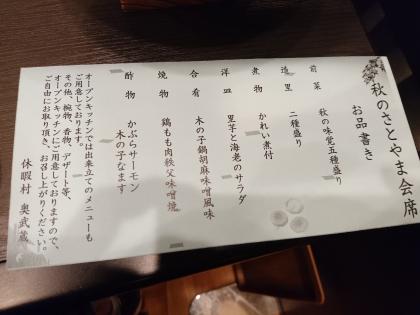 秋のさとやま会席
お品書き
前菜 秋の味覚五種盛り
造里 二種盛り
煮物 かれい煮付
洋皿 里芋と海老のサラダ
合肴 木の子鍋胡麻味噌風味
焼物 鶏もも肉秩父味噌焼
酢物 かぶらサーモン
木の子なます
オープンキッチンでは出来立てのメニューも
ご用意しております。
その他、椀物、香物、デザート等、
オープンキッチンにご用意しておりますので、
ご自由にお取り頂き、お召し上がりください。
休暇村 奥武蔵